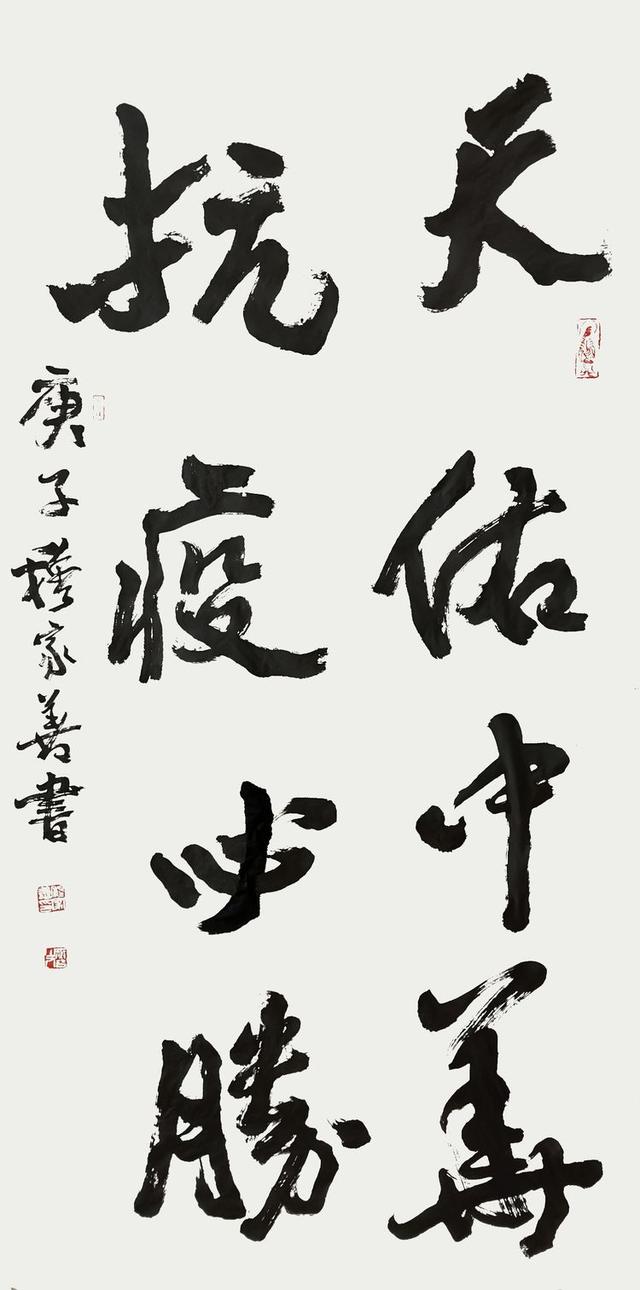 天佑中華
抗疫必勝
庚子 家善書